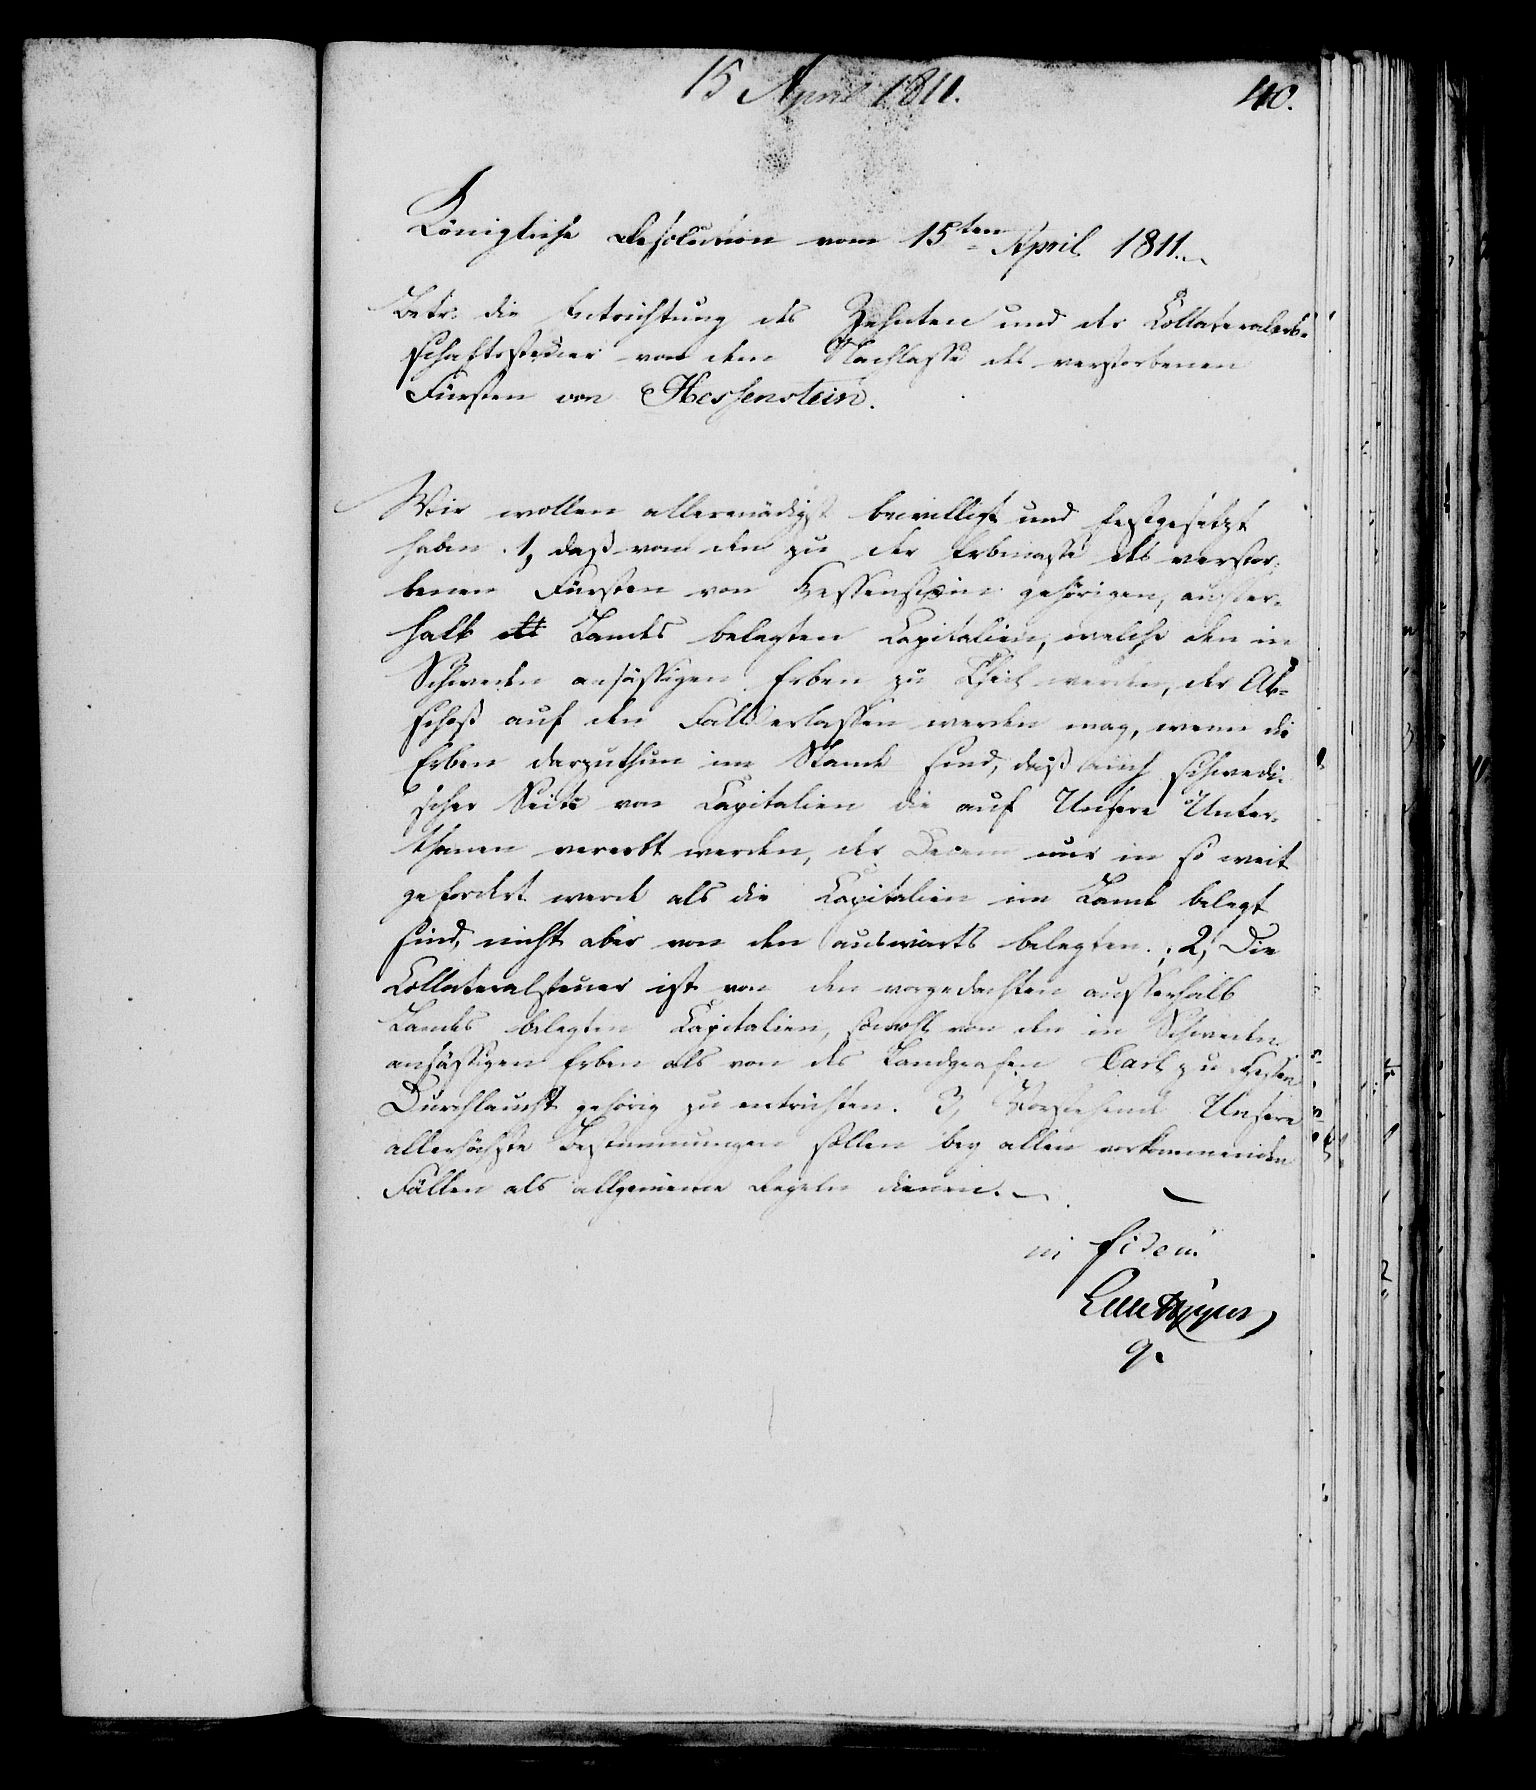 15 April 1811.
40.
Königliche Resolution vom 15ten April 1811.
Betr. die Entrichtung des Zehnten und der Collateralerb-
schaftssteuer von dem Nachlasse des verstorbenen
Fürsten von Hessenstein.
Wir wollen allergnädigst bewilligt und festgesetzt
haben. 1, daß von den zu der Erbmasse des verstor-
benen Fürsten von Hessenstein gehörigen, außer-
halb des Landes belegten Capitalien, welche den in
Schweden ansässigen Erben zu Theil werden, der Ab-
schoß auf den Fall erlassen werden mag, wenn die
Erben darzuthun im Stande sind, daß auch schwedi-
scher Seits von Capitalien die auf Unsere Unter-
thanen vererbt werden, der Decem nur in so weit
gefordert werde als die Capitalien im Lande belegt
sind, nicht aber von den auswärts belegten.; 2, Die
Collateralsteuer ist von den vorgedachten ausserhalb
Landes belegten Capitalien, sowohl von den in Schweden
ansässigen Erben als von des Landgrafen Carl zu Hessen
Durchlaucht gehörig zu entrichten. 3, Vorstehende Unsere
allerhöchste Bestimmungen sollen bey allen vorkommenden
Fällen als allgemeine Regeln dienen.
in fidem